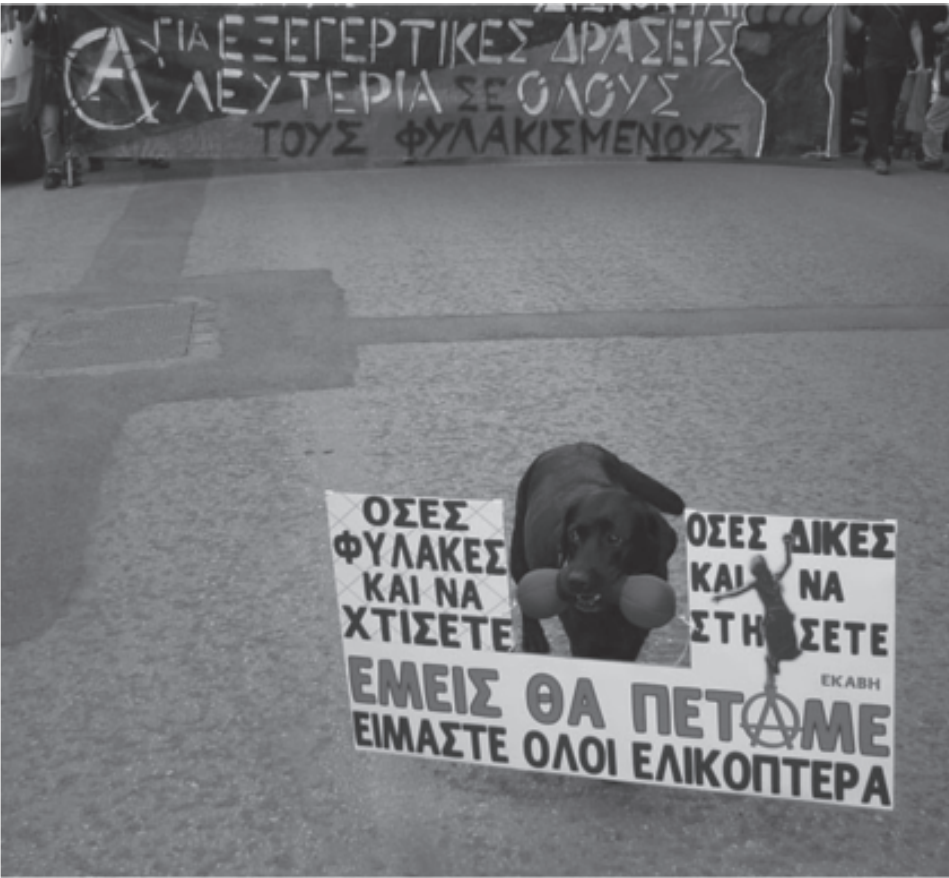 ΓΙΑ ΕΞΕΓΕΡΤΙΚΕΣ ΔΡΑΣΕΙΣ
ΛΕΥΤΕΡΙΑ ΣΕ ΟΛΟΥΣ
ΤΟΥΣ ΦΥΛΑΚΙΣΜΕΝΟΥΣ
ΟΣΕΣ
ΦΥΛΑΚΕΣ
ΚΑΙ ΝΑ
ΧΤΙΣΕΤΕ
ΟΣΕΣ ΔΙΚΕΣ
ΚΑΙ ΝΑ
ΣΤΗΣΕΤΕ
ΕΚΑΒΗ
ΕΜΕΙΣ ΘΑ ΠΕΤΑΜΕ
ΕΙΜΑΣΤΕ ΟΛΟΙ ΕΛΙΚΟΠΤΕΡΑ